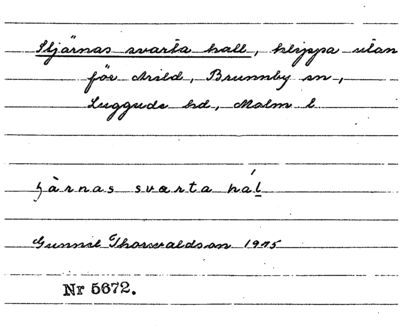 Stjärnas svarta hall, klippa utan
för Arild, Brunnby sn,
Luggude hd, Malm l
ʂä̀rnas svarta hál
Gunnel Thorwaldson 1975
Nr 5672.